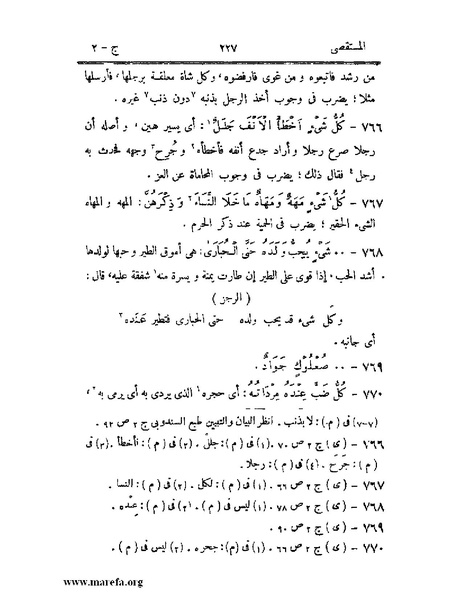 المستقصى ٢٢٧ ج - ٢
من رشد فاتبعوه و من غوى فارفضوه، وكل شاة معلقة برجلها، فأرسلها
مثلا؛ يضرب فى وجوب أخذ الرجل بذنبه ٧دون ذنب٧ غيره .
٧٦٦ - كُلُّ شَىْءٍ اَخْطَأَ الْاَنْفَ جَلَلٌ١: أى يسير هين، و أصله أن
رجلا صرع رجلا و أراد جدع أنفه فأخطأه٢ و جُرِح٣ وجهه فحدث به
رجل٤ فقال ذلك؛ يضرب فى وجوب المحاماة عن العز .
٧٦٧ - كُلُّ١ شَىْءٍ مَهَهٌ وَمَهَاهٌ مَا خَلَا النِّسَاءَ٢ وَ ذِكْرَهُنَّ: المهه و المهاه
الشىء الحقير؛ يضرب فى الحمية عند ذكر الحرم .
٧٦٨ - ٠٠ شَىْءٍ يُحِبُّ وَلَدَهُ حَتَّى الْحُبَارَى: هى أموق الطير و حبها لولدها
أشد الحب، إذا قوى على الطير إن طارت يمنة و يسرة منه١ شفقة عليه، قال :
( الرجز )
و كل شىء قد يحب ولده حتى الحبارى فتطير عنده٢
أى جانبه .
٧٦٩ - ٠٠ صُعْلُوْكٍ جَوَادٌ .
٧٧٠ - كُلُّ ضَبٍّ عِنْدَهُ مِرْدَاتُهُ: أى حجره١ الذى يردى به أى يرمى به٢،
(٧-٧) فى (م): لا بذنب . انظر البيان والتبيين طبع السندوبى ج ٢ ص ٩٢ .
٧٦٦ - (ى) ج ٢ ص ٧٠ . (١) فى (م): جلل . (٢) فى (م): فأخطأ . (٣) فى
(م): جَرَح . (٤) فى (م): رجلا .
٧٦٧ - (ى) ج ٢ ص ٦٦ . (١) فى (م): لكل . (٢) فى (م): النسا .
٧٦٨ - (ى) ج ٢ ص ٧٨ . (١) ليس فى (م) . (٢) فى (م): عِنْده .
٧٦٩ - (ى) ج ٢ ص ٩٠ .
٧٧٠ - (ى) ج ٢ ص ٦٦ . (١) فى (م): جحره . (٢) ليس فى (م) .
www.marefa.org